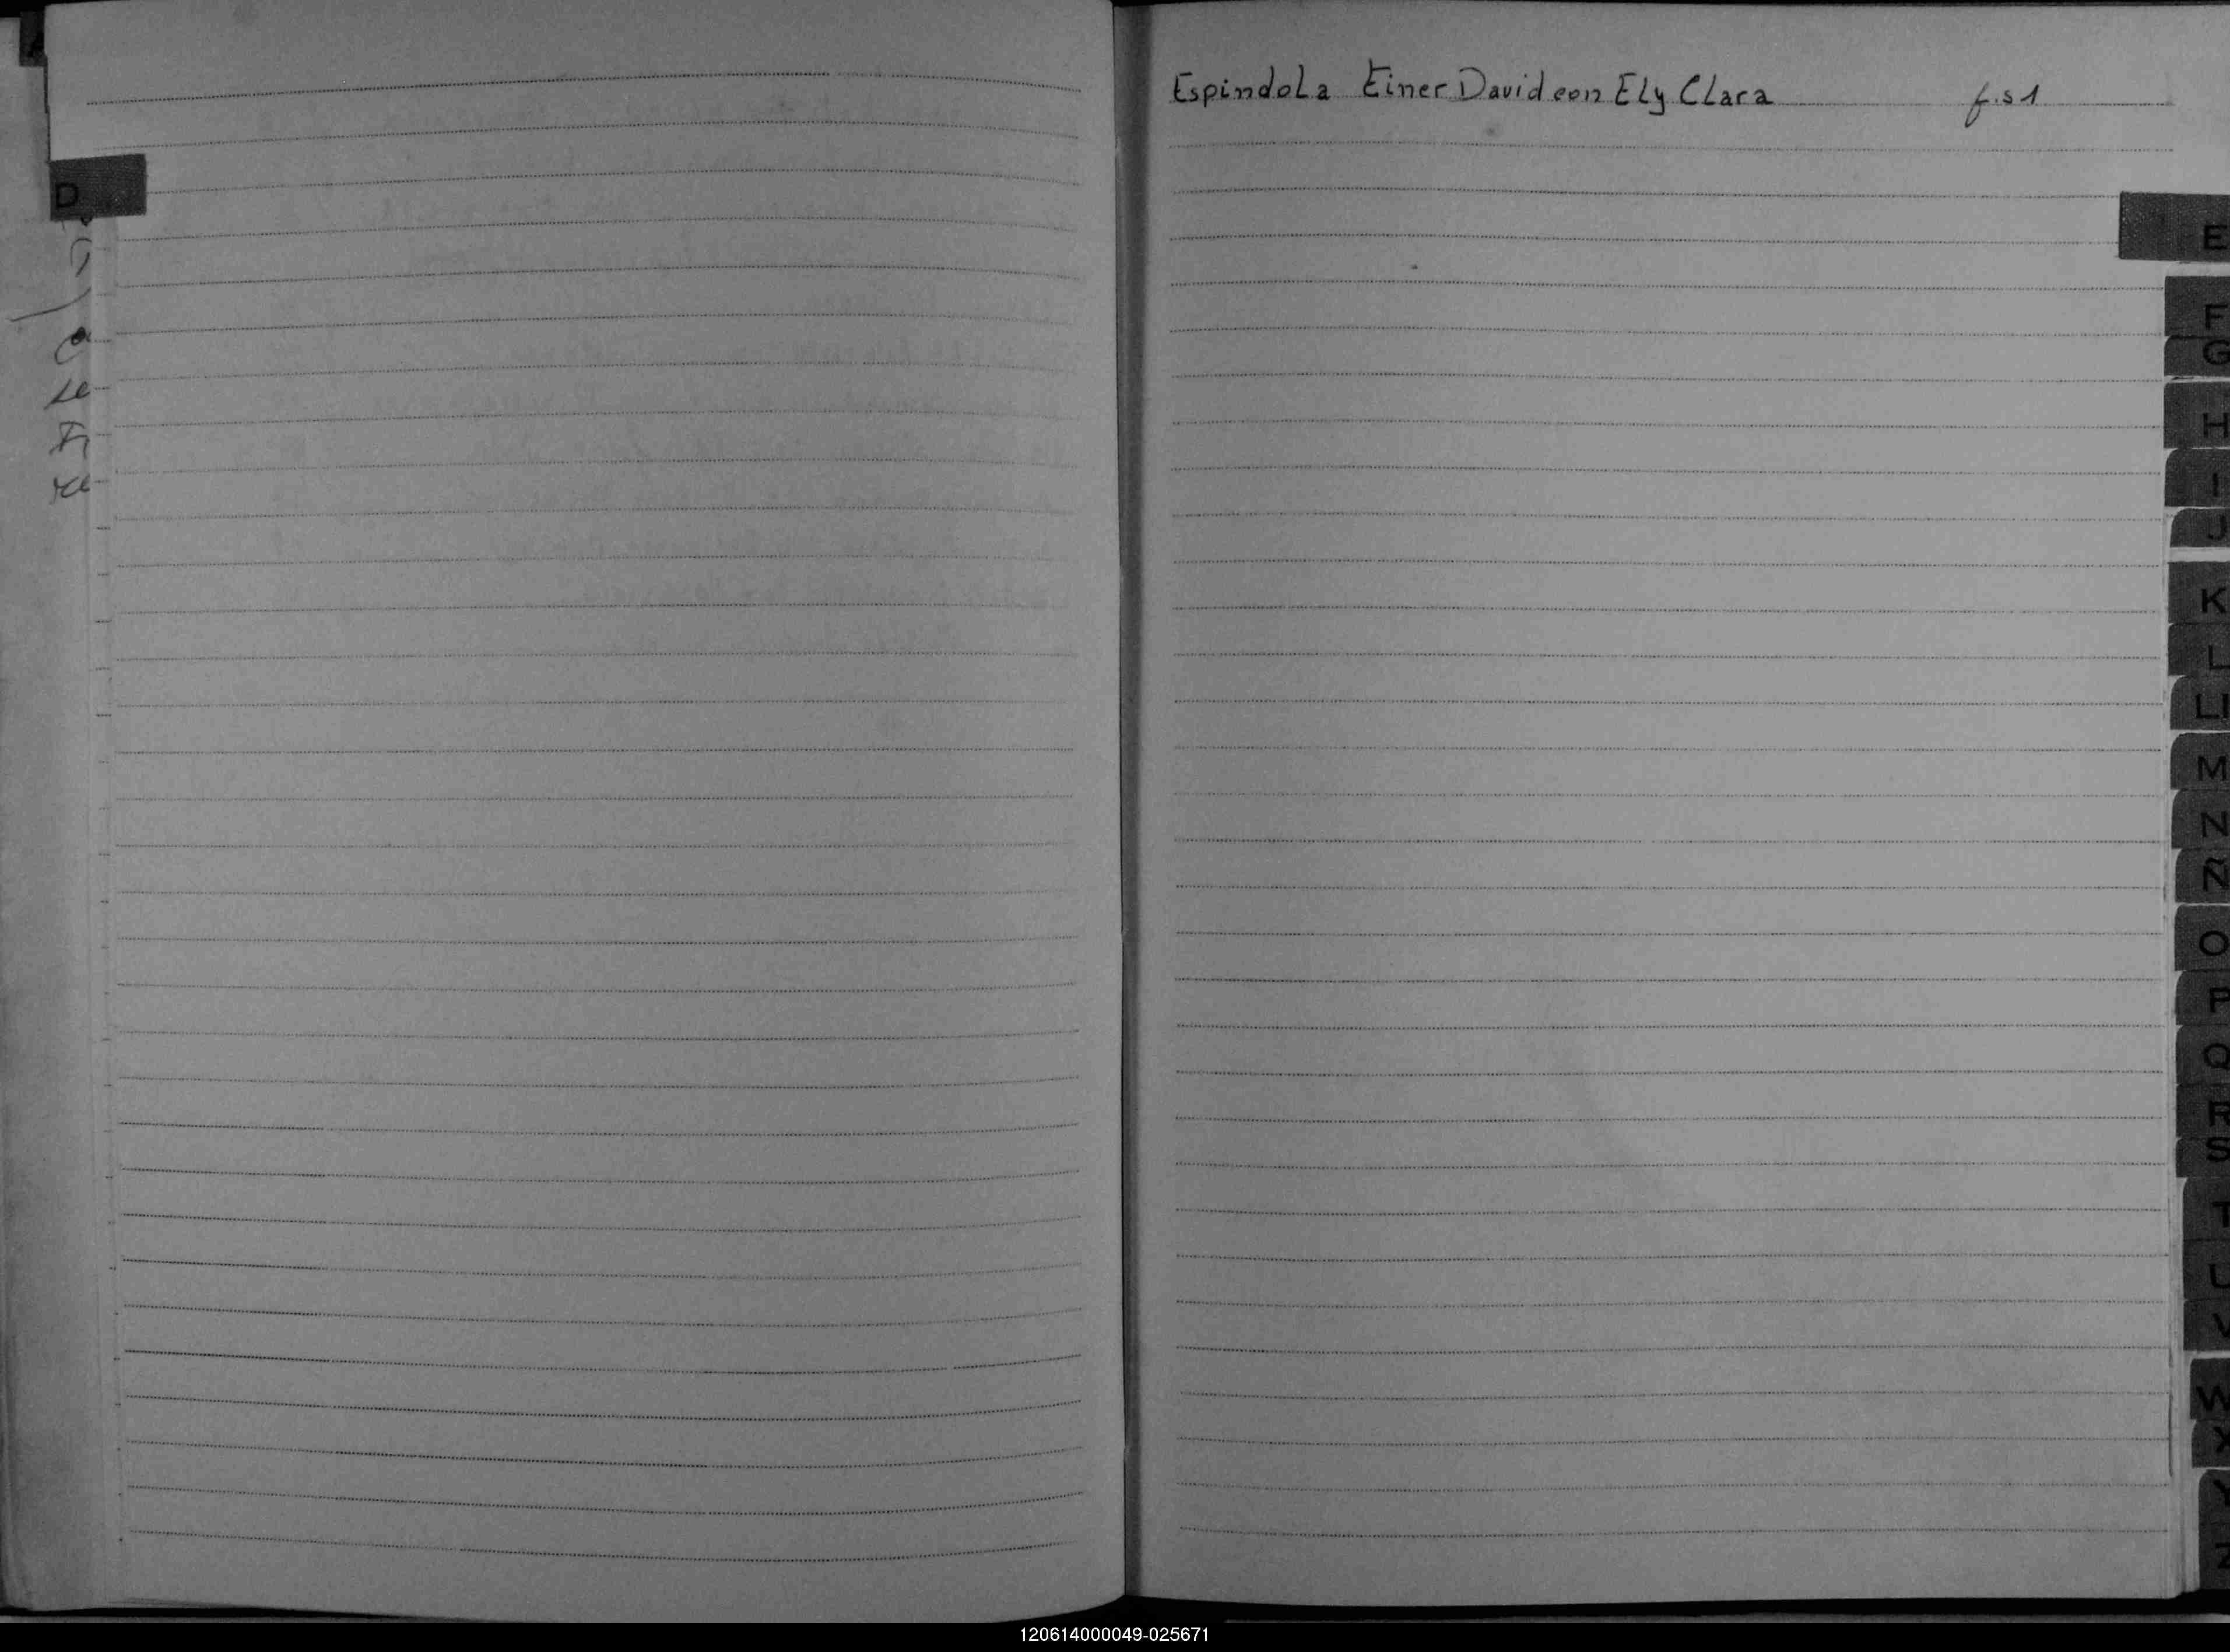 D
Espindola Einer David con Ely Clara f.s 1
E
F
G
H
I
J
K
L
Ll
M
N
Ñ
O
P
Q
R
S
T
U
V
W
X
Y
Z
120614000049-025671